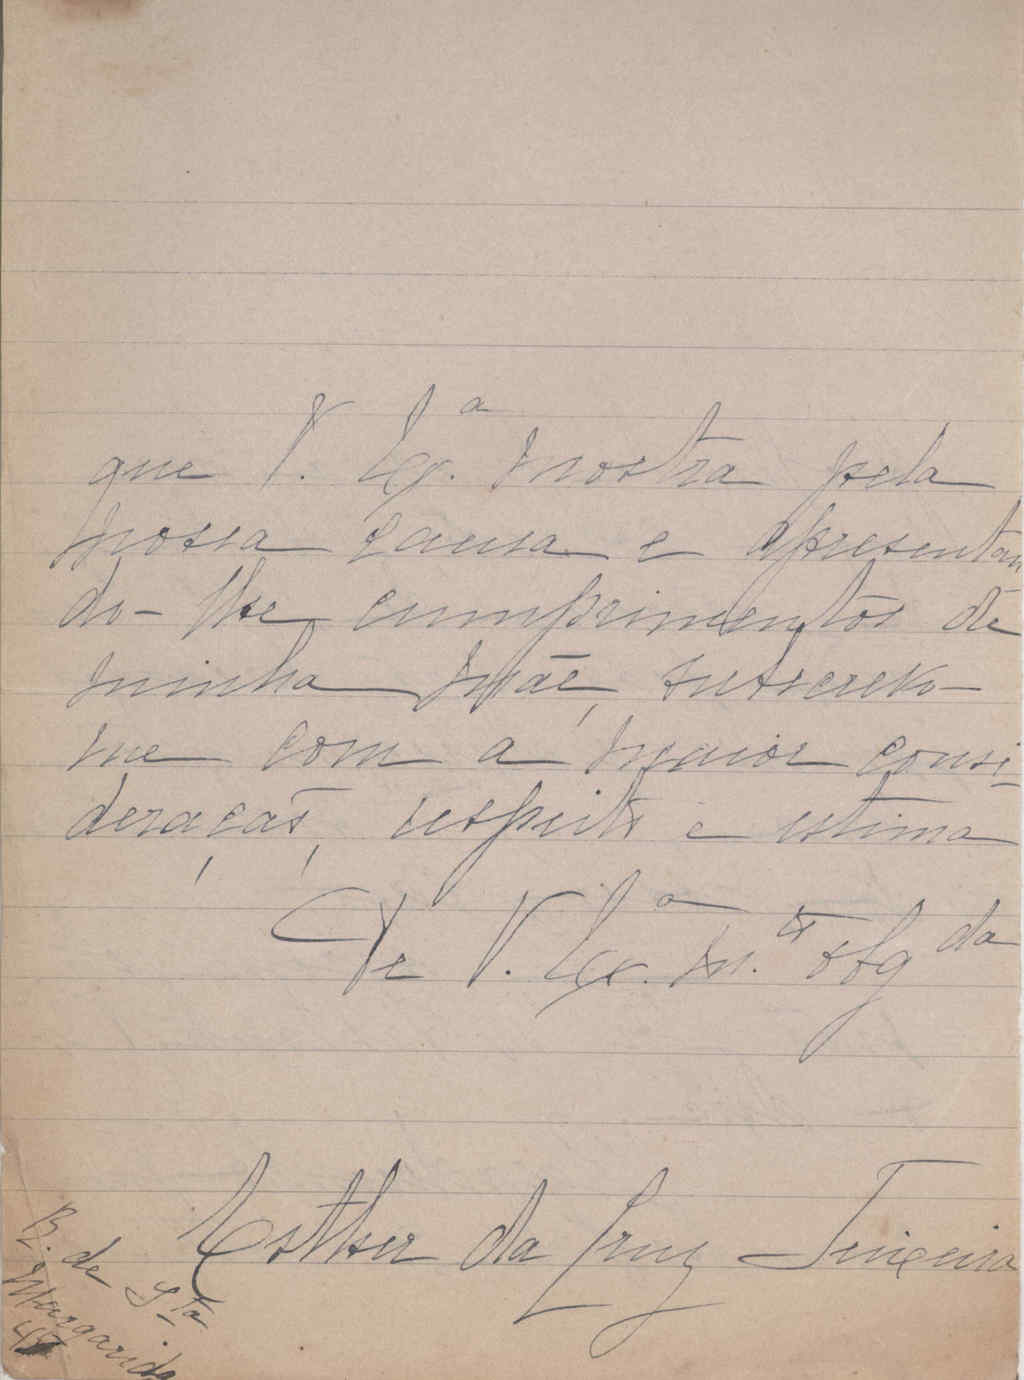 que V. Ex.ª mostra pela
nossa causa e apresentan
do-lhe cumprimentos de
minha mãe, subscrevo-
me com a maior consi-
deração, respeito e estima
De V. Ex.ª m.to obgda
Esther da Cruz Teixeira
R. de Sta
Margarida